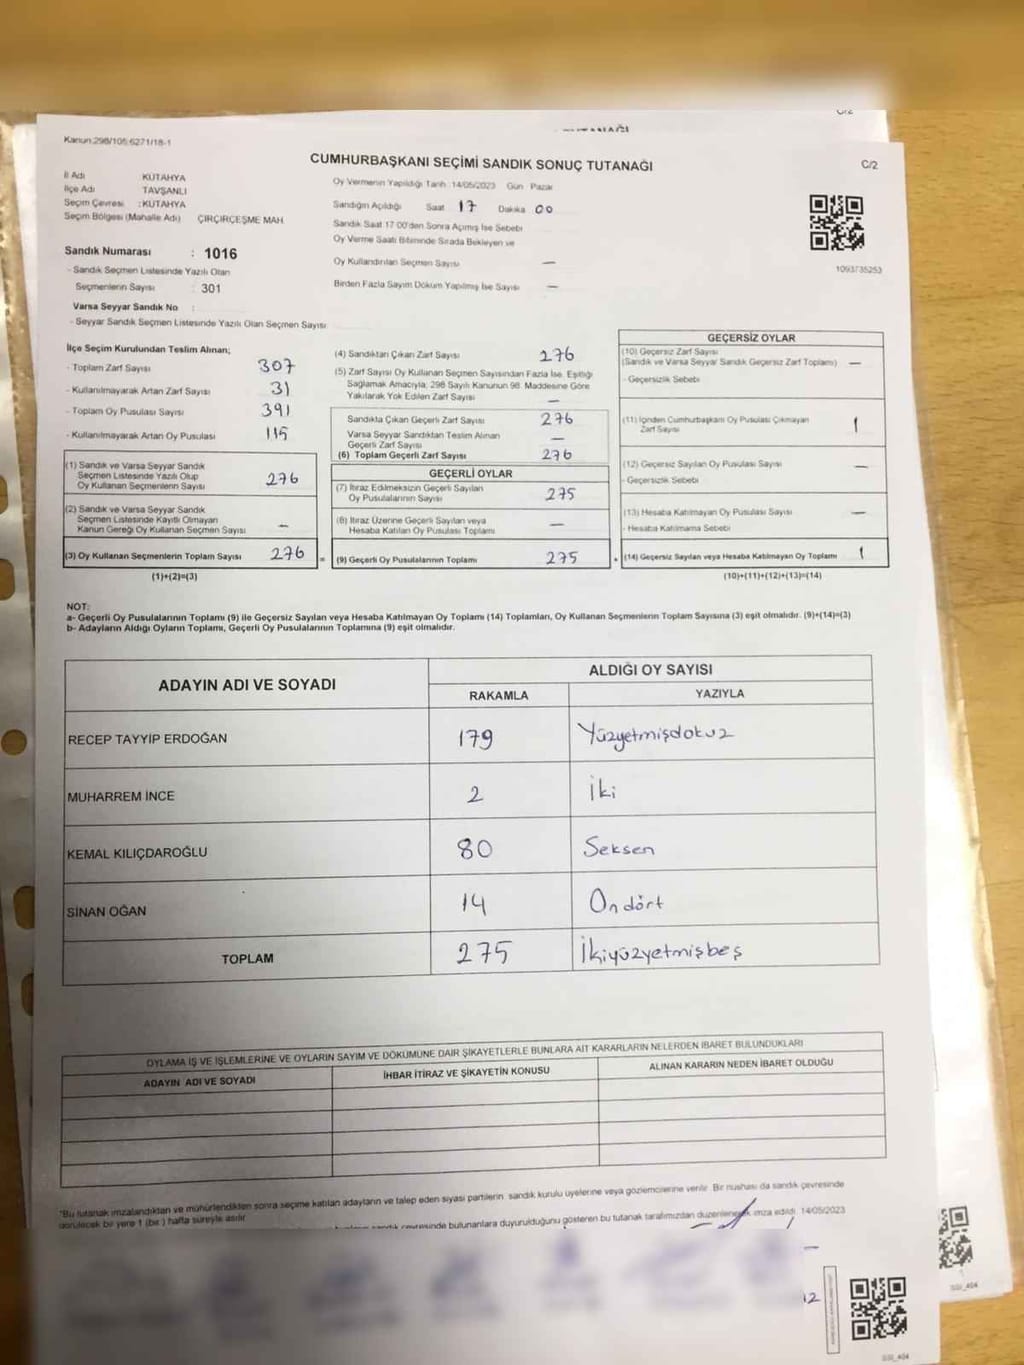 Kanun 298/105 6271/18-1
CUMHURBAŞKANI SEÇİMİ SANDIK SONUÇ TUTANAĞI
C/2
İl Adı KÜTAHYA
İlçe Adı TAVŞANLI
Seçim Çevresi :KÜTAHYA
Seçim Bölgesi (Mahalle Adı) ÇIRÇIRÇEŞME MAH.
Sandık Numarası : 1016
- Sandık Seçmen Listesinde Yazılı Olan
Seçmenlerin Sayısı 301
Varsa Seyyar Sandık No :
- Seyyar Sandık Seçmen Listesinde Yazılı Olan Seçmen Sayısı
Oy Vermenin Yapıldığı Tarih :14/05/2023 Gün Pazar
Sandığın Açıldığı Saat 17 Dakika 00
Sandık Saat 17:00'den Sonra Açımış İse Sebebi
Oy Verme Saati Bitiminde Sırada Bekleyen ve
Oy Kullandırılan Seçmen Sayısı —
Birden Fazla Sayım Döküm Yapılmış İse Sayısı —
1093735253
İlçe Seçim Kurulundan Teslim Alınan;
- Toplam Zarf Sayısı 307
- Kullanılmayarak Artan Zarf Sayısı 31
- Toplam Oy Pusulası Sayısı 391
- Kullanılmayarak Artan Oy Pusulası 115
(1) Sandık ve Varsa Seyyar Sandık
Seçmen Listesinde Yazılı Olup
Oy Kullanan Seçmenlerin Sayısı 276
(2) Sandık ve Varsa Seyyar Sandık
Seçmen Listesinde Kayıtlı Olmayan
Kanun Gereği Oy Kullanan Seçmen Sayısı —
(3) Oy Kullanan Seçmenlerin Toplam Sayısı 276 =
(1)+(2)=(3)
(4) Sandıktan Çıkan Zarf Sayısı 276
(5) Zarf Sayısı Oy Kullanan Seçmen Sayısından Fazla İse, Eşitliği
Sağlamak Amacıyla, 298 Sayılı Kanunun 98. Maddesine Göre
Yakılarak Yok Edilen Zarf Sayısı —
Sandıkta Çıkan Geçerli Zarf Sayısı 276
Varsa Seyyar Sandıktan Teslim Alınan
Geçerli Zarf Sayısı —
(6) Toplam Geçerli Zarf Sayısı 276
GEÇERLİ OYLAR
(7) İtiraz Edilmeksizin Geçerli Sayılan
Oy Pusulalarının Sayısı 275
(8) İtiraz Üzerine Geçerli Sayılan veya
Hesaba Katılan Oy Pusulası Toplamı —
(9) Geçerli Oy Pusulalarının Toplamı 275 +
GEÇERSİZ OYLAR
(10) Geçersiz Zarf Sayısı
(Sandık ve Varsa Seyyar Sandık Geçersiz Zarf Toplamı) —
- Geçersizlik Sebebi
(11) İçinden Cumhurbaşkanı Oy Pusulası Çıkmayan
Zarf Sayısı 1
(12) Geçersiz Sayılan Oy Pusulası Sayısı —
- Geçersizlik Sebebi
(13) Hesaba Katılmayan Oy Pusulası Sayısı —
- Hesaba Katılmama Sebebi
(14) Geçersiz Sayılan veya Hesaba Katılmayan Oy Toplamı 1
(10)+(11)+(12)+(13)=(14)
NOT:
a- Geçerli Oy Pusulalarının Toplamı (9) ile Geçersiz Sayılan veya Hesaba Katılmayan Oy Toplamı (14) Toplamları, Oy Kullanan Seçmenlerin Toplam Sayısına (3) eşit olmalıdır. (9)+(14)=(3)
b- Adayların Aldığı Oyların Toplamı, Geçerli Oy Pusulalarının Toplamına (9) eşit olmalıdır.
ADAYIN ADI VE SOYADI
ALDIĞI OY SAYISI
RAKAMLA YAZIYLA
RECEP TAYYİP ERDOĞAN 179 Yüzyetmişdokuz
MUHARREM İNCE 2 İki
KEMAL KILIÇDAROĞLU 80 Seksen
SİNAN OĞAN 14 Ondört
TOPLAM 275 İkiyüzyetmişbeş
OYLAMA İŞ VE İŞLEMLERİNE VE OYLARIN SAYIM VE DÖKÜMÜNE DAİR ŞİKAYETLERLE BUNLARA AİT KARARLARIN NELERDEN İBARET BULUNDUKLARI
ADAYIN ADI VE SOYADI İHBAR İTİRAZ VE ŞİKAYETİN KONUSU ALINAN KARARIN NEDEN İBARET OLDUĞU
*Bu tutanak imzalandıktan ve mühürlendikten sonra seçime katılan adayların ve talep eden siyasi partilerin sandık kurulu üyelerine veya gözlemcilerine verilir. Bir nüshası da sandık çevresinde
görülecek bir yere 1 (bir) hafta süreyle asılır.
sandık çevresinde bulunanlara duyurulduğunu gösteren bu tutanak tarafımızdan düzenlenerek imza edildi. 14/05/2023